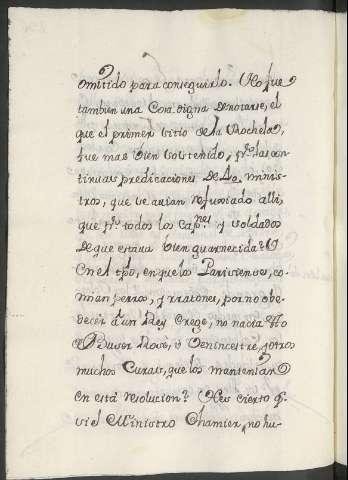 omitido para conseguirlo. No fue
tambien una Cosa digna de notarse, el
que el primer sitio de la Rochela,
fue mas bien sostenido, pr. las con-
tinuas predicaciones de 40. minis-
tros, que se avian refugiado alli,
que pr. todos los capnes. y soldados
de que estava bien guarnecida?
En el tpo, en que los Parisienses, co-
mian perros, y rratones, por no obe-
decer a un Rey Erege, no nacia
muchos Curas, que los mantenian
en esta resolucion? Es cierto q.
si el Ministro Chamier, no hu-